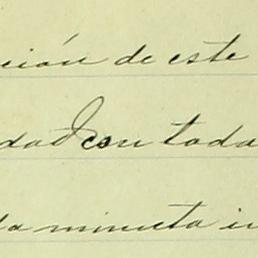 ción de este
dad con toda
la minuta in